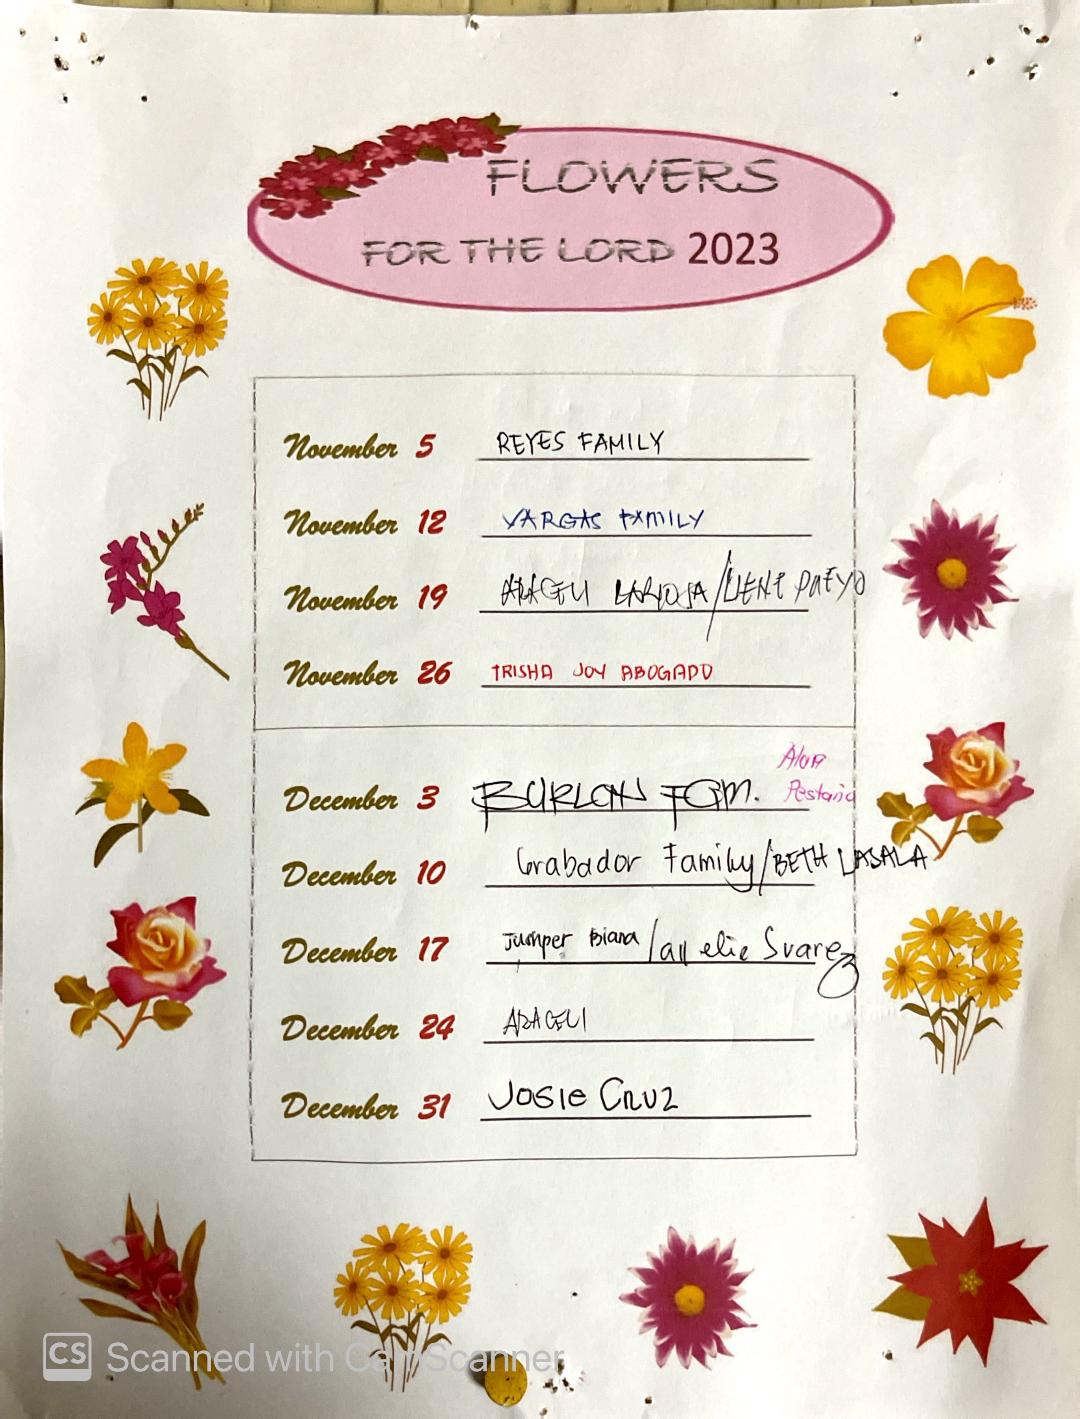 FLOWERS
FOR THE LORD 2023
November 5 REYES FAMILY
November 12 VARGAS FAMILY
November 19 ARAGELI LARIOSA /
November 26 TRISHA JOY ABOGADO
December 3 BURLON FAM. Alva Pestaño
December 10 Grabador Family/BETH LASALA
December 17 Jumper Biana / Suarez
December 24 ARAGELI
December 31 JOSIE CRUZ
CS Scanned with CamScanner